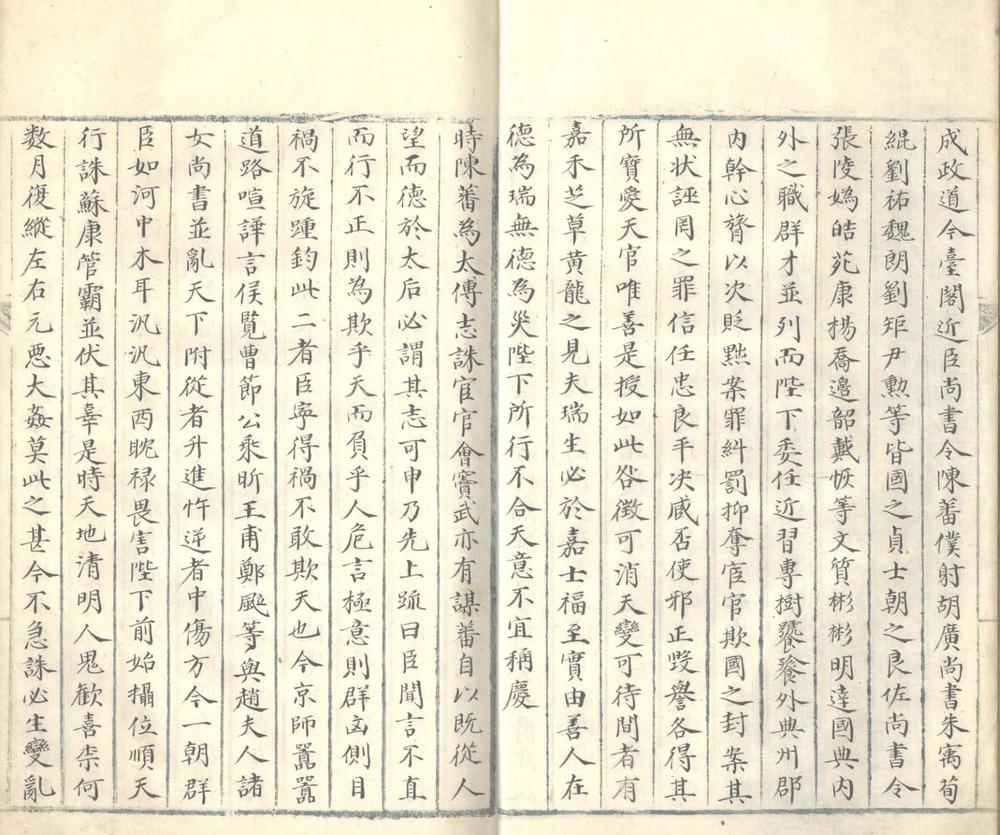 成政道今臺閣近臣尚書令陳蕃僕射胡廣尚書朱㝢荀
緄劉祐魏朗劉矩尹勲等皆國之貞士朝之良佐尚書令
張陵媯皓苑康楊喬邉韶戴恢等文質彬彬明達國典內
外之職群才並列而陛下委任近習専樹饕餮外典州郡
內幹心膂以次貶黜案罪糾罰抑奪宦官欺國之封案其
無狀誣罔之罪信任忠良平决臧否使邪正毀譽各得其
所寶愛天官唯善是授如此咎徵可消天變可待間者有
嘉禾芝草黄龍之見夫瑞生必於嘉士福至實由善人在
德為瑞無德為災陛下所行不合天意不宜稱慶
時陳蕃為太傅志誅宦官會竇武亦有謀蕃自以既從人
望而德於太后必謂其志可申乃先上䟽曰臣聞言不直
而行不正則為欺乎天而負乎人危言極意則群凶側目
禍不旋踵鈞此二者臣寧得禍不敢欺天也今京師嚻嚻
道路喧譁言侯覧曹節公乘昕王甫鄭颯等與趙夫人諸
女尚書並亂天下附從者升進忤逆者中傷方今一朝群
臣如河中木耳汎汎東西眈禄畏害陛下前始攝位順天
行誅蘇康管霸並伏其辜是時天地清明人鬼歡喜柰何
数月復縱左右元惡大姦莫此之甚今不急誅必生變亂